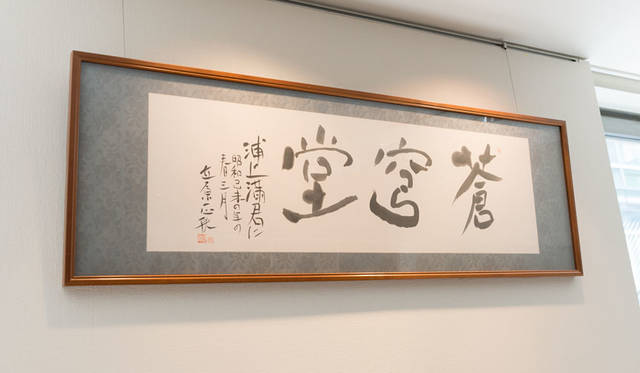 蒼穹堂
浦上満君に
昭和己未の年の
春三月
立原正秋